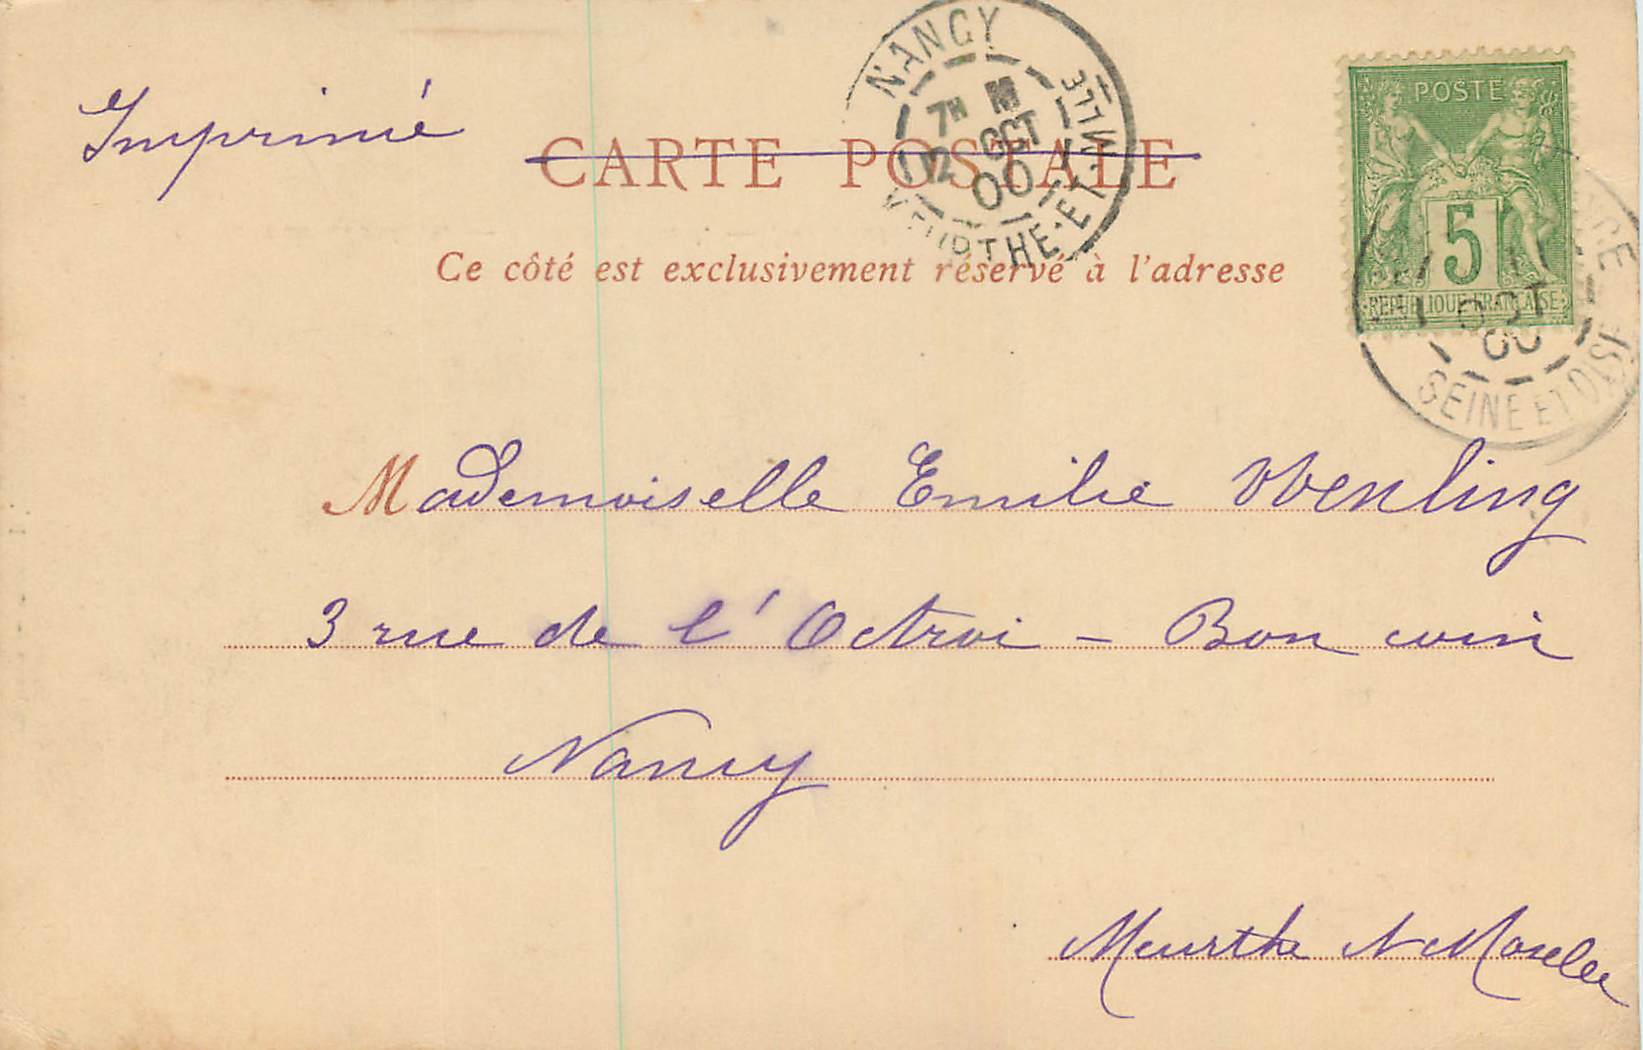 Imprimé
CARTE POSTALE
Ce côté est exclusivement réservé à l'adresse
NANCY
7H M
12 OCT
00
MEURTHE-ET-MLLE
POSTE
5
REPUBLIQUE FRANÇAISE
OCT
00
SEINE ET OISE
Mademoiselle Emilie Wenling
3 rue de l'Octroi - Bon coin
Nancy
Meurthe et Moselle